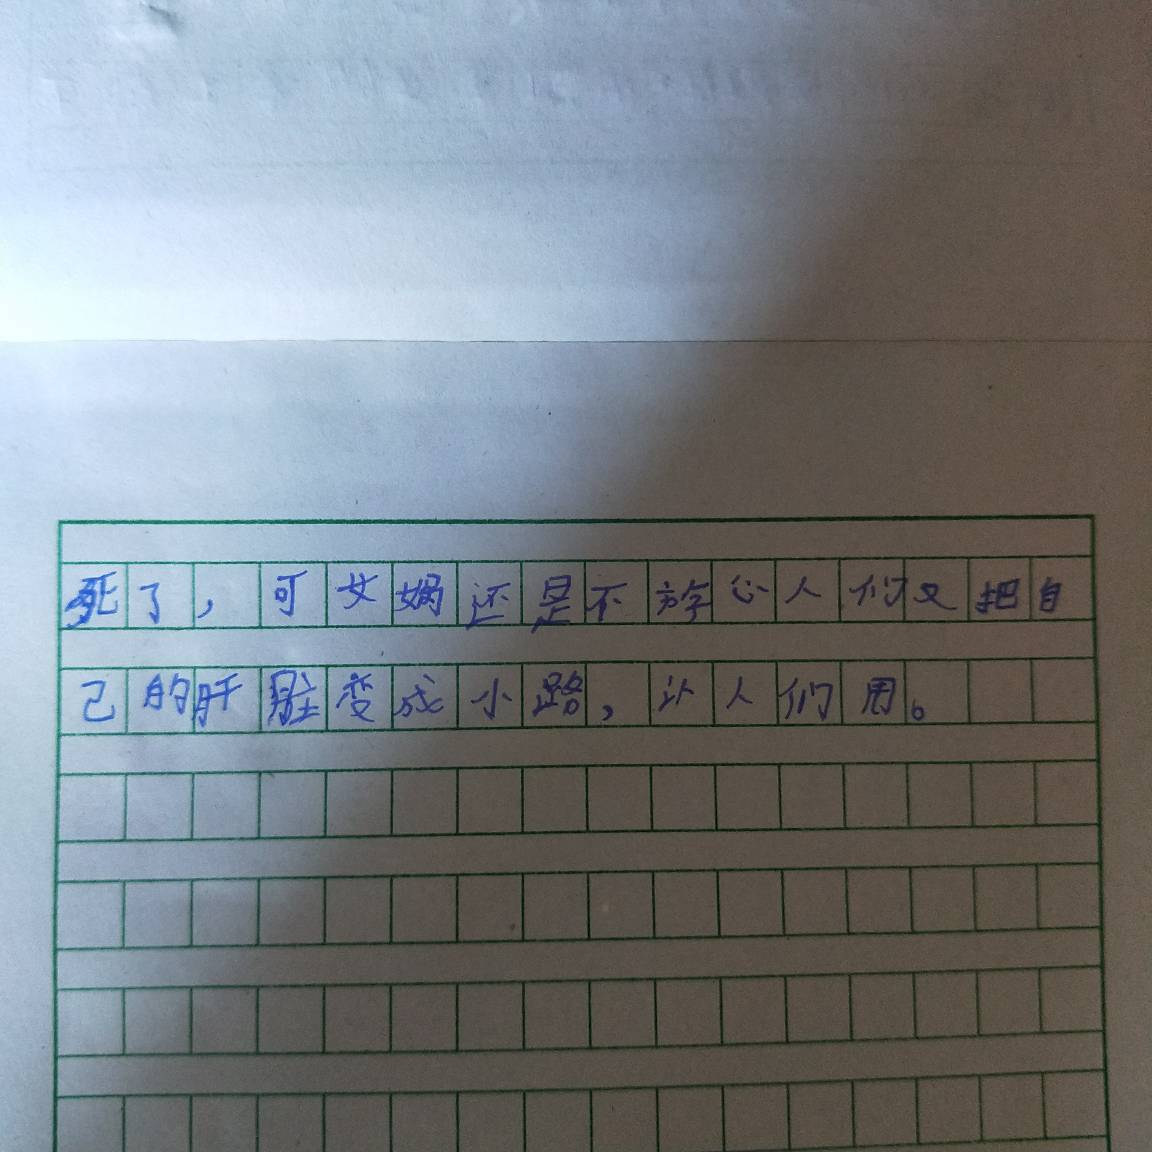 死了，可女娲还是不放心人们又把自
己的肝脏变成小路，让人们用。